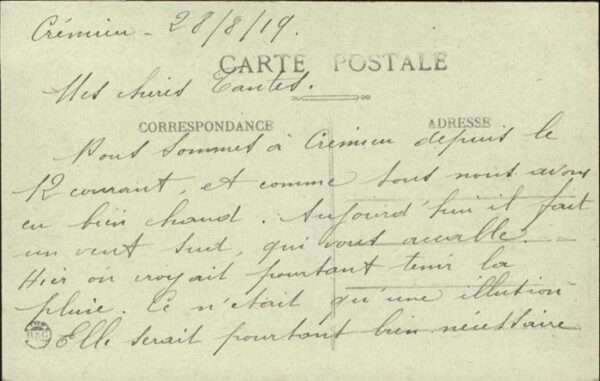 Crémieu - 28/8/19.
CARTE POSTALE
Mes chères Tantes.
CORRESPONDANCE
ADRESSE
Nous sommes à Crémieu depuis le
12 courant, et comme tous nous avons
eu bien chaud. Aujourd'hui il fait
un vent sud, qui vous accable.
Hier on croyait pourtant tenir la
pluie. Ce n'était qu'une illution
Elle serait pourtant bien nécessaire